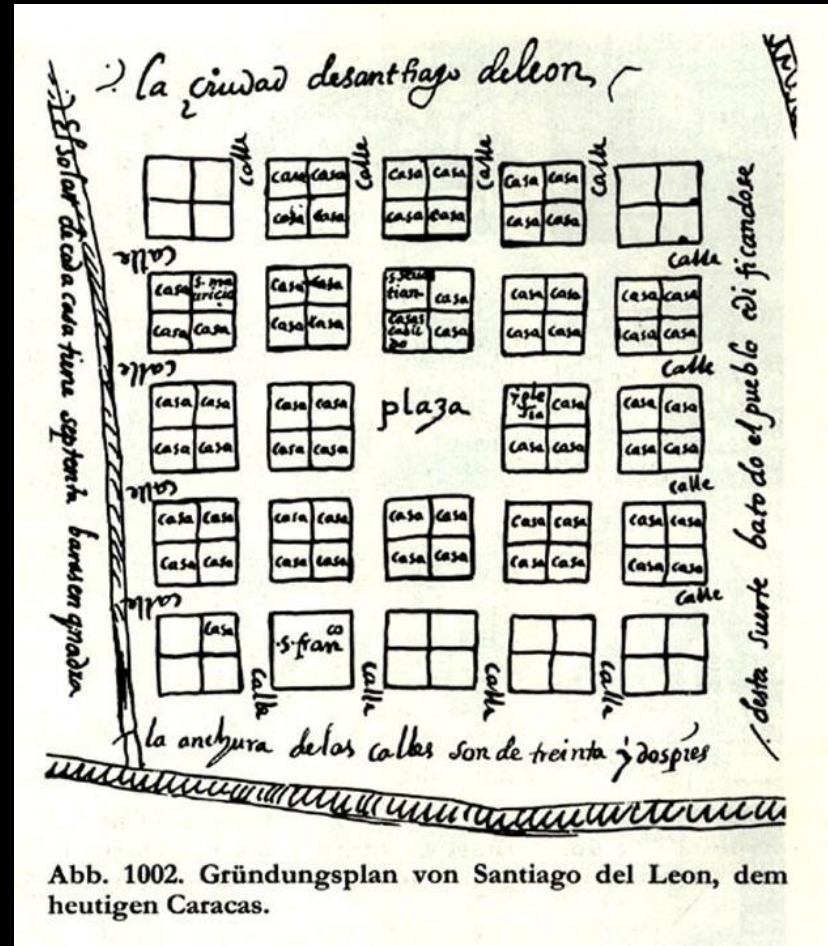 la ciudad desanthiago deleon
El solar de cada casa tiene septenta baras en quadra
calle calle calle calle
casa casa casa casa casa casa
casa casa casa casa casa casa
calle calle
casa s. mauricio casa casa s. sebastian casa casa casa casa casa
casa casa casa casa casas cabildo casa casa casa casa casa
calle calle
casa casa casa casa plaza yglesia casa casa casa
casa casa casa casa casa casa casa casa
calle calle
casa casa casa casa casa casa casa casa casa casa
casa casa casa casa casa casa casa casa casa casa
calle calle
casa .s. fran co
calle calle calle calle
desta suerte ba todo el pueblo edificandose
la anchura de las calles son de treinta y dos pies
Abb. 1002. Gründungsplan von Santiago del Leon, dem
heutigen Caracas.